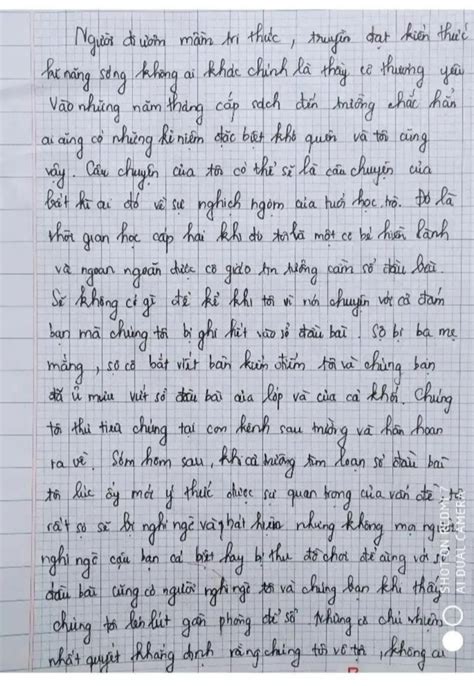 Người đi ươm mầm tri thức, truyền đạt kiến thức
kĩ năng sống không ai khác chính là thầy cô thương yêu
Vào những năm tháng cấp sách đến trường chắc hẳn
ai cũng có những kỉ niệm đặc biệt khó quên và tôi cũng
vậy. Câu chuyện của tôi có thể sẽ là câu chuyện của
bất kì ai đó về sự nghịch ngợm của tuổi học trò. Đó là
thời gian học cấp hai khi đó tôi là một cô bé hiền lành
và ngoan ngoãn được cô giáo tin tưởng cầm sổ đầu bài.
Sẽ không có gì để kể khi tôi vì nói chuyện với cả đám
bạn mà chúng tôi bị ghi hết vào sổ đầu bài. Sợ bị ba mẹ
mắng, sợ cô bắt viết bản kiểm điểm tôi và chúng bạn
đã ủ mưu vứt sổ đầu bài của lớp và của cả khối. Chúng
tôi thủ tiêu chúng tại con kênh sau trường và hân hoan
ra về. Sớm hôm sau, khi cả trường tìm loạn sổ đầu bài
tôi lúc ấy mới ý thức được sự quan trọng của vấn đề tô
rất sợ sẽ bị nghi ngờ và phát hiện nhưng không mọi người
nghi ngờ cậu bạn cá biệt hay bị thu đồ chơi để cùng với sổ
đầu bài cũng có người nghi ngờ tôi và chúng bạn khi thấy
chúng tôi lén lút gần phòng để sổ. Nhưng cô chủ nhiệm
nhất quyết khẳng định rằng chúng tôi vô tội, không ai
SHOT ON REDMI 7
AI DUAL CAMERA